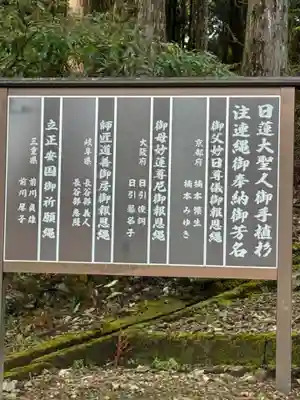 日蓮大聖人御手植杉
注連縄御奉納御芳名
御父妙日尊儀御報恩縄
京都府 橋本 繁生
橋本 みゆき
御母妙蓮尊尼御報恩縄
大阪府 日引 俊詞
日引 子
師匠道善御房御報恩縄
岐阜県 長谷部 義人
長谷部 恵
立正安国御祈願縄
三重県 前川 貞雄
前川 尽子